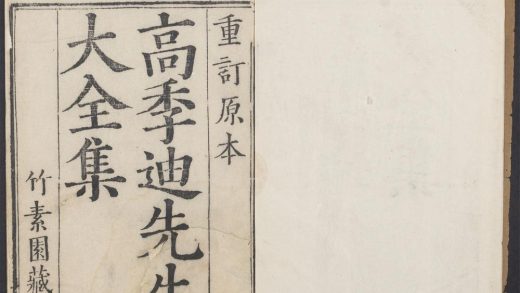 重訂原本
高季迪先生
大全集
竹素園藏